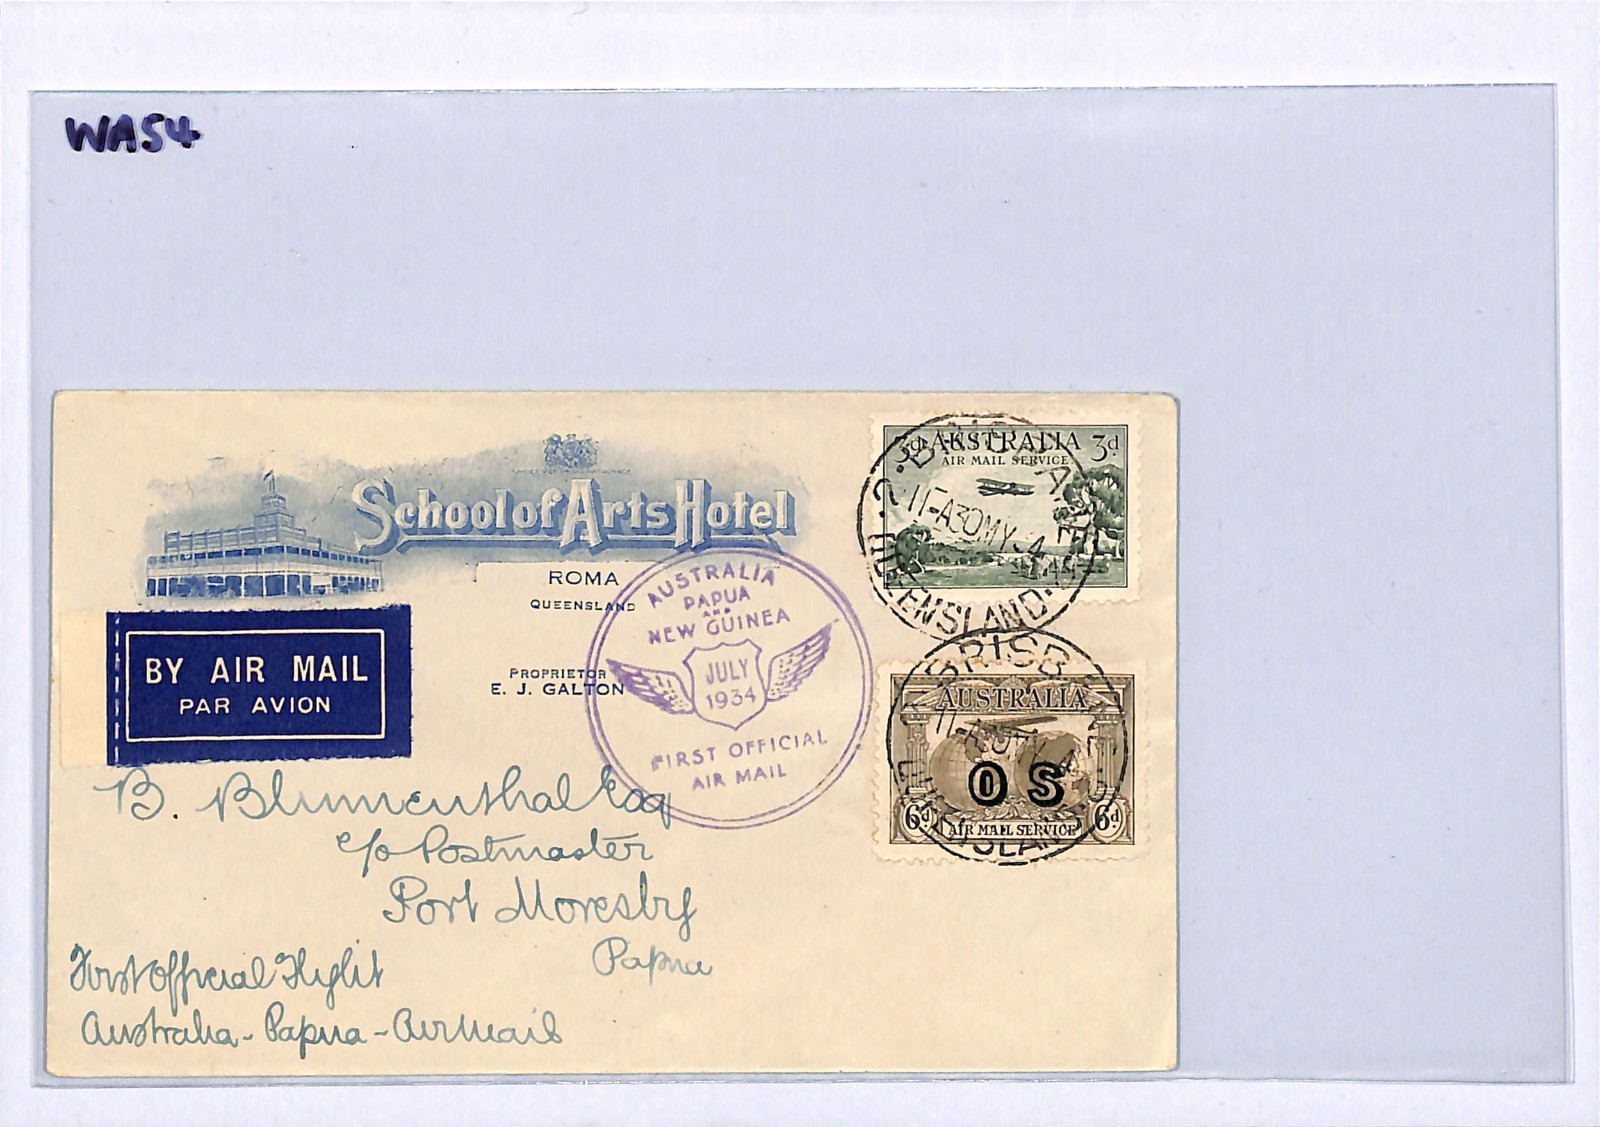 WA54
School of Arts Hotel
ROMA
QUEENSLAND
PROPRIETOR
E. J. GALTON
BY AIR MAIL
PAR AVION
AUSTRALIA
PAPUA
AND
NEW GUINEA
JULY
1934
FIRST OFFICIAL
AIR MAIL
3d AUSTRALIA 3d
AIR MAIL SERVICE
QUEENSLAND
AUSTRALIA
OS
6d AIR MAIL SERVICE 6d
B. Blumenthal Esq
c/o Postmaster
Port Moresby
Papua
First Official Flight
Australia - Papua - Air Mail